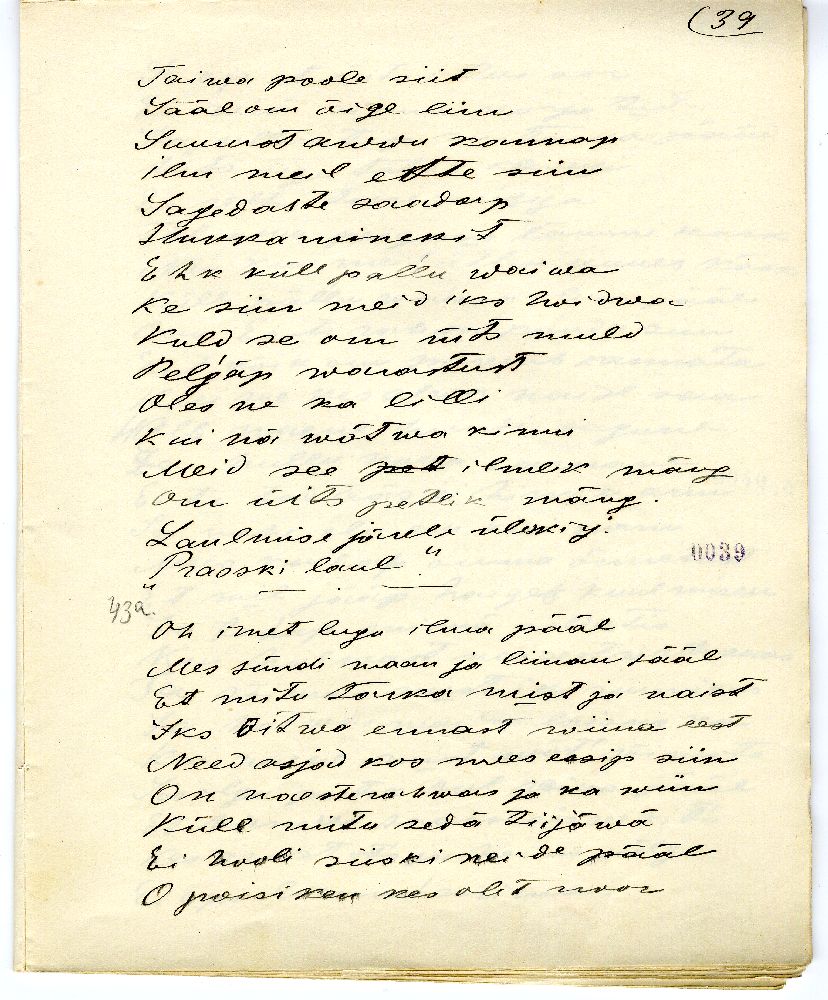 (39
Taiwa poole siit
Sääl om õige liin
Suurust auwu kannap
ilm meil ette siin
Sagedaste saadap
Hukkaminekit
Ehk küll pallu waiwa
Ke siin meid iks hoidwa
Kuld se om üits muld
Pelgäp warastust
Oles ne ka lilli
Kui nä wõtwa kinni
Meid see pet ilmlik mäng
Om üits petlik mäng.
Laulmise järele ülekirj.
"Praoski laul."
0039
43a.
Oh imet lugu ilma pääl
Mes sündi maan ja liinan sääl
Et mitu tarka mist ja naist
Iks Oitwa ennast wiina eest
Need asjad koo siin
On naesterahwas ja ka wiin
Küll mitu sedä tiijäwä
Ei hooli siiski neide pääl
O poisiken kes olet noor